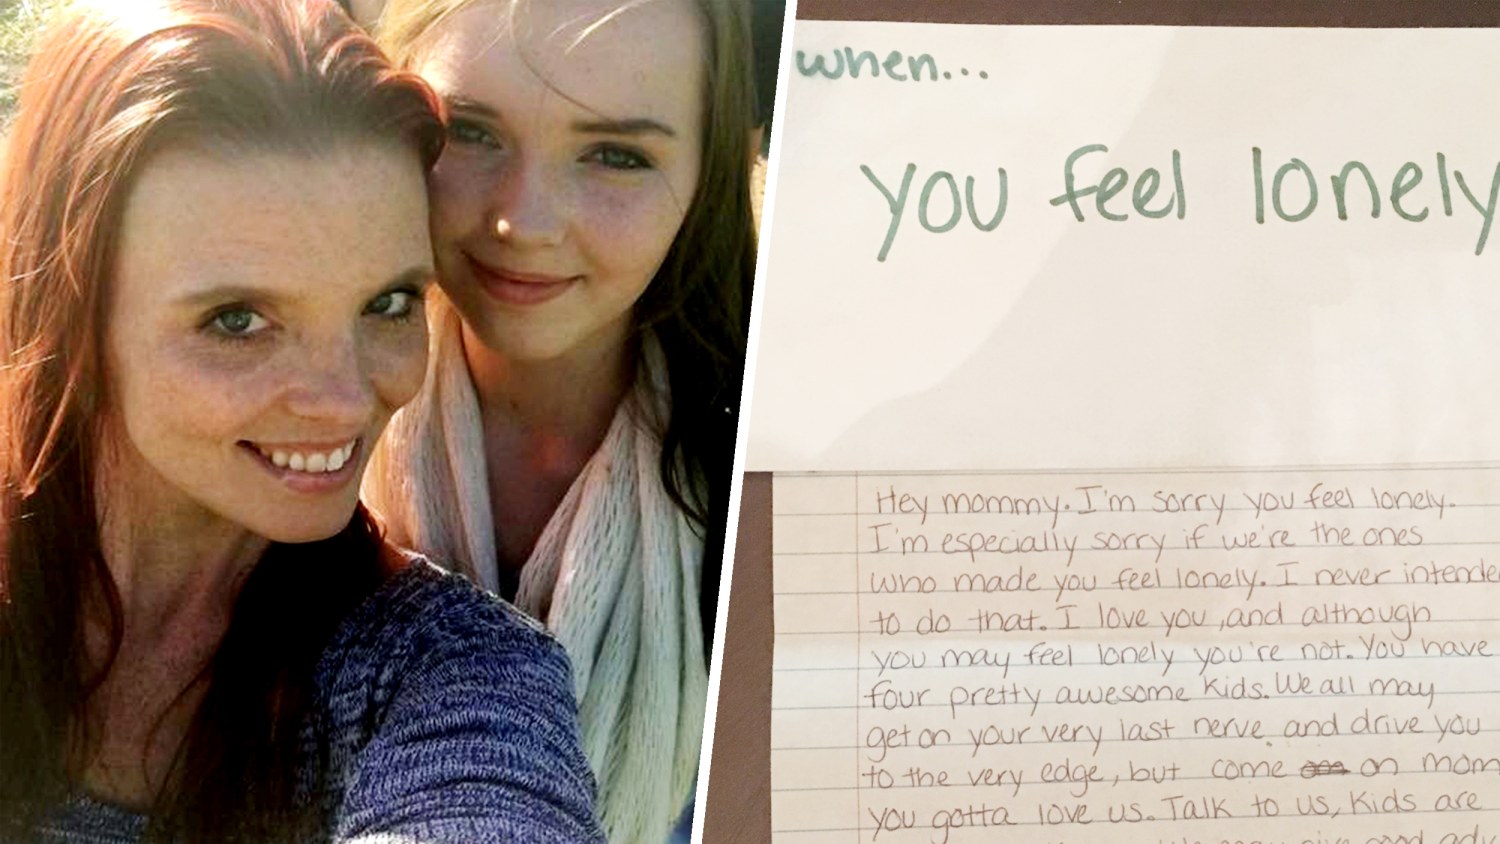 when...
you feel lonely
Hey mommy. I'm sorry you feel lonely.
I'm especially sorry if we're the ones
who made you feel lonely. I never intende
to do that. I love you, and although
you may feel lonely you're not. You have
four pretty awesome kids. We all may
get on your very last nerve, and drive you
to the very edge, but come on mom
you gotta love us. Talk to us, kids are
give good adv